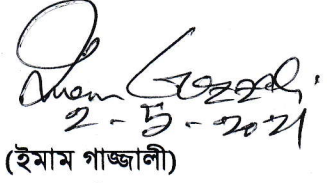 Imam Gazzali.
2 - 5 - 2021
(ইমাম গাজ্জালী)